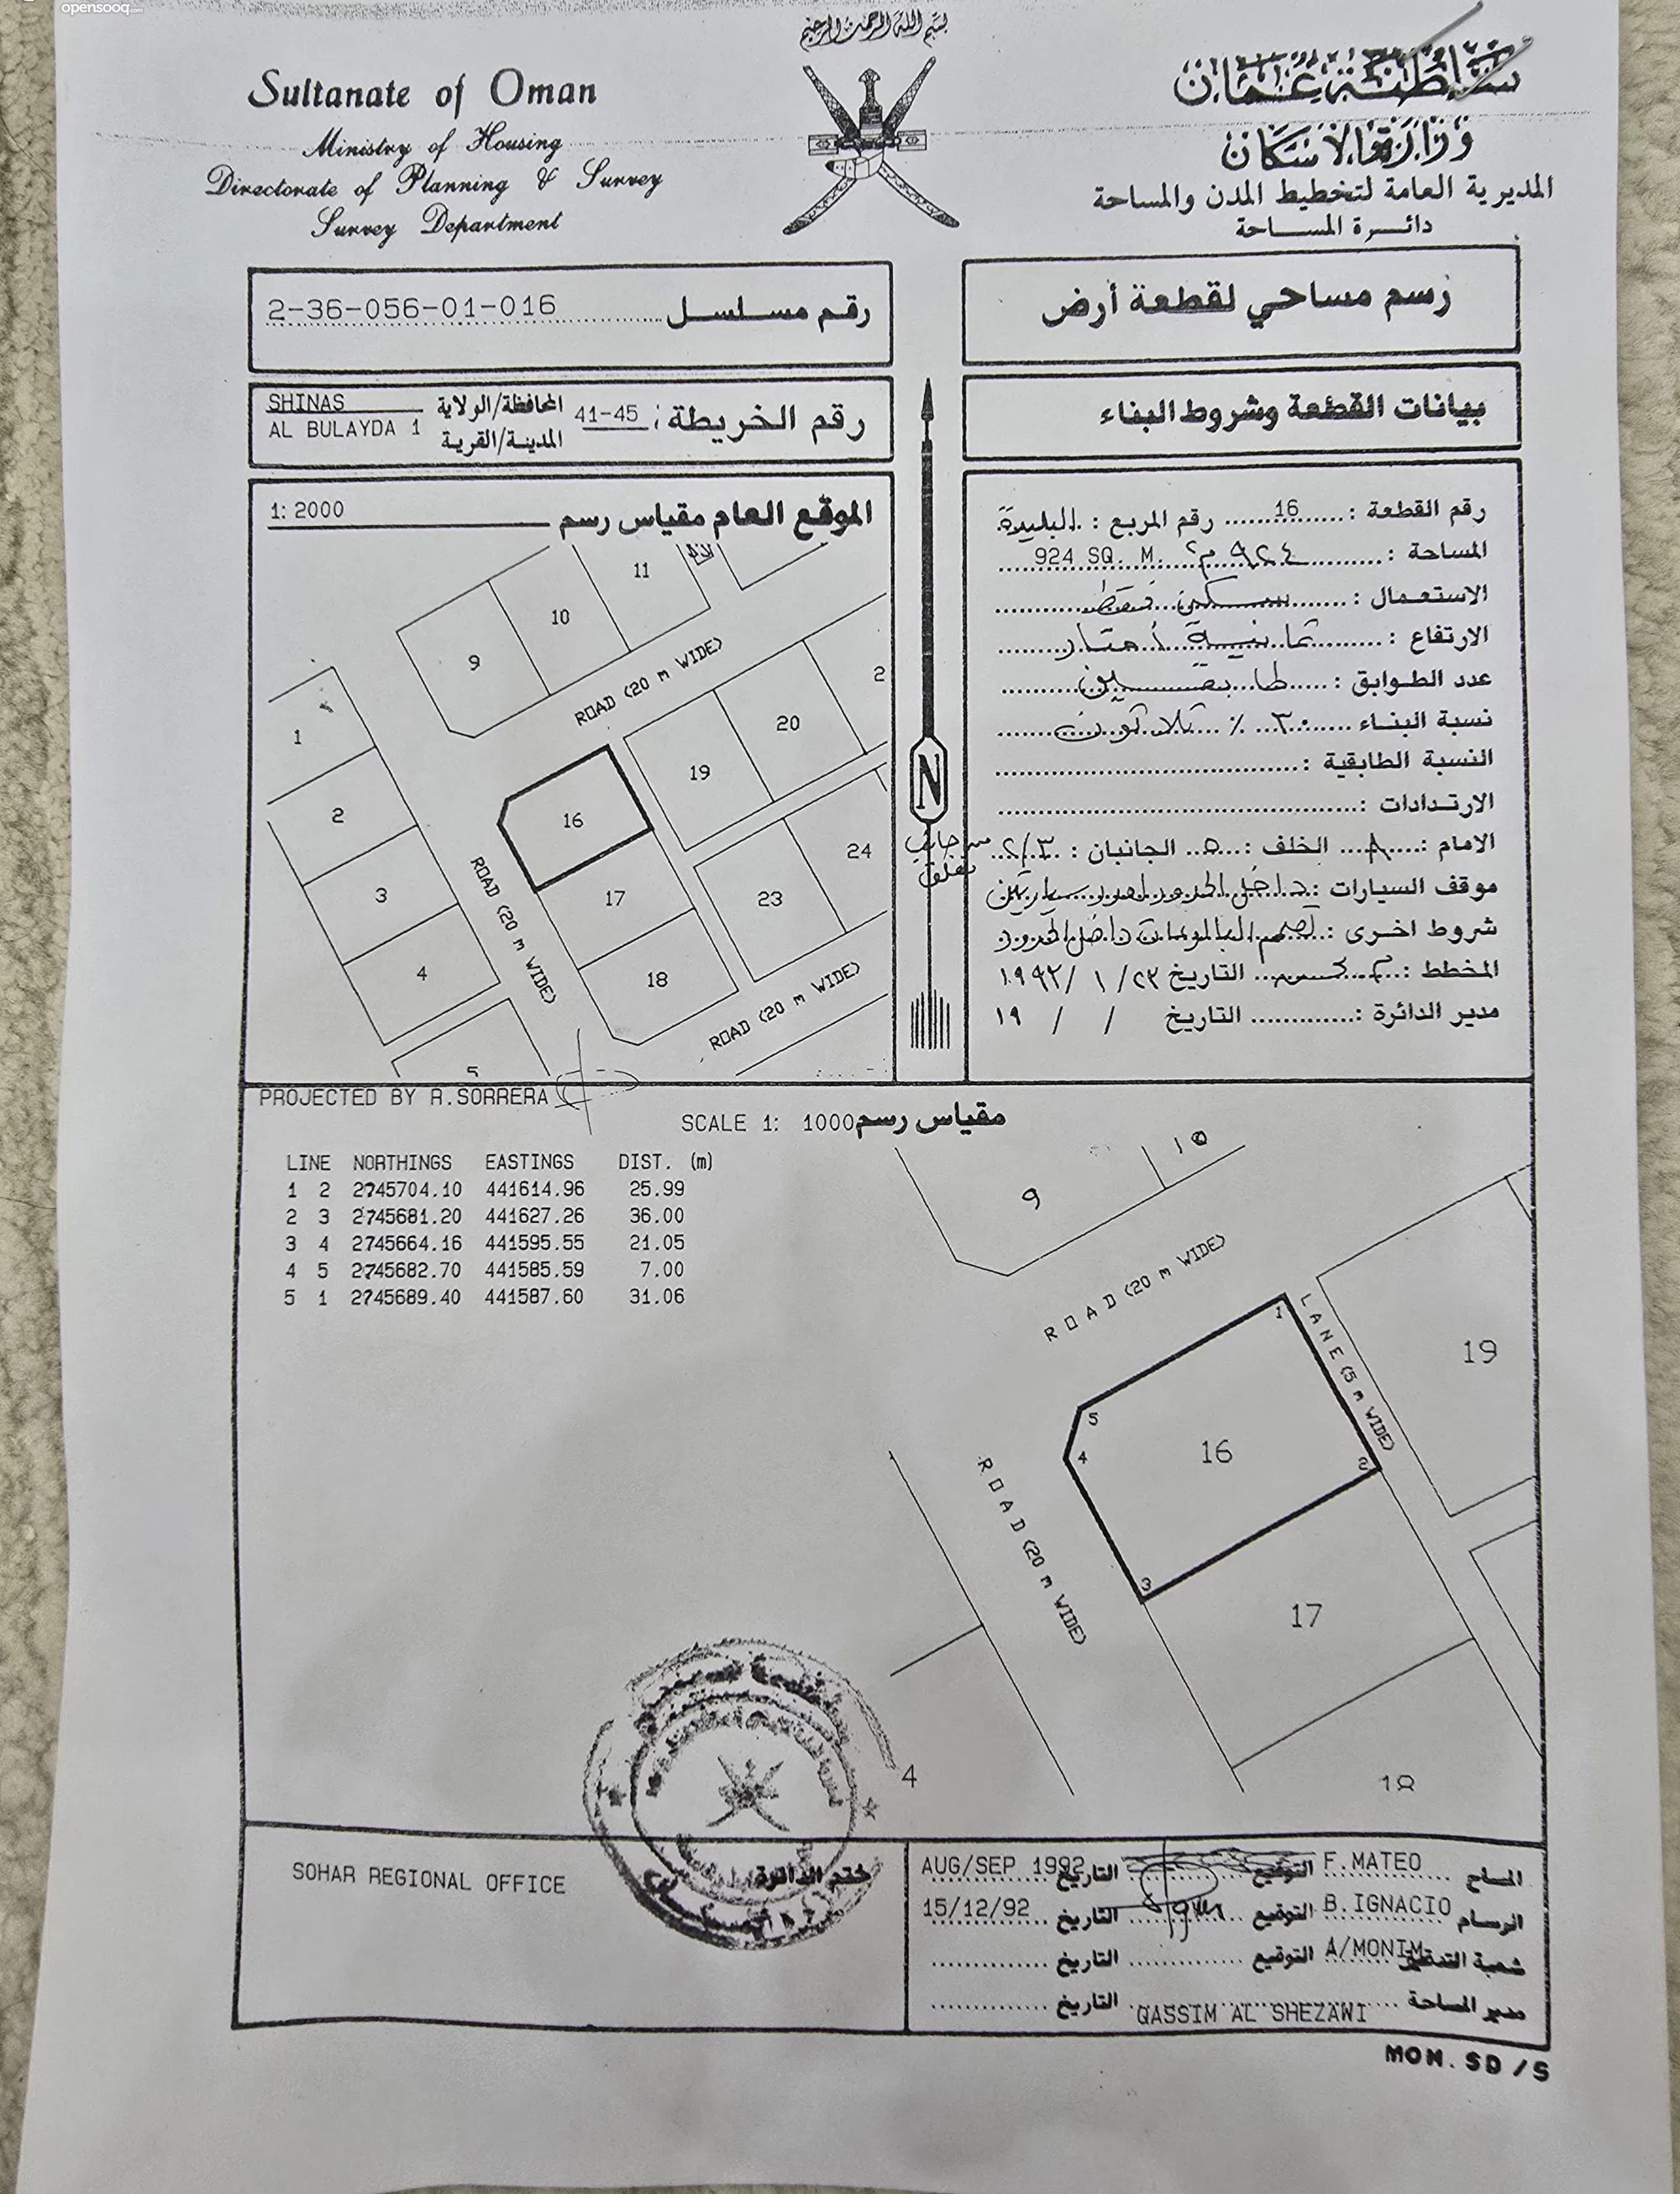 opensooq.com
بسم الله الرحمن الرحيم
Sultanate of Oman
Ministry of Housing
Directorate of Planning & Survey
Survey Department
سلطنة عمان
وزارة الاسكان
المديرية العامة لتخطيط المدن والمساحة
دائرة المساحة
رسم مساحي لقطعة أرض
رقم مسلسل 2-36-056-01-016
بيانات القطعة وشروط البناء
رقم الخريطة : 41-45
المحافظة/الولاية SHINAS
المدينة/القرية AL BULAYDA 1
الموقع العام مقياس رسم 1: 2000
11
10
9
ROAD (20 m WIDE)
2
20
19
1
2
16
24
3
17
23
4
18
ROAD (20 m WIDE)
ROAD (20 m WIDE)
5
N
رقم القطعة : 16 رقم المربع : البليدة
المساحة : ٩٢٤ م٢ 924 SQ. M.
الاستعمال : سكني فقط
الارتفاع : ثمانية أمتار
عدد الطوابق : طابقين
نسبة البناء ٣٠ % ثلاثون
النسبة الطابقية :
الارتدادات :
الامام : ٨ الخلف : ٥ الجانبان : ٢/٣
موقف السيارات : داخل الحدود
شروط اخرى : داخل الحدود
المخطط : التاريخ ٢٣/ ١ /١٩٩٢
مدير الدائرة : التاريخ / / ١٩
PROJECTED BY R.SORRERA
SCALE 1: 1000 مقياس رسم
LINE NORTHINGS EASTINGS DIST. (m)
1 2 2745704.10 441614.96 25.99
2 3 2745681.20 441627.26 36.00
3 4 2745664.16 441595.55 21.05
4 5 2745682.70 441585.59 7.00
5 1 2745689.40 441587.60 31.06
10
9
ROAD (20 m WIDE)
LANE (5 m WIDE)
19
1
5
4
16
2
3
ROAD (20 m WIDE)
17
4
18
SOHAR REGIONAL OFFICE
ختم الدائرة
المساح F.MATEO التوقيع التاريخ AUG/SEP 1992
الرسام B.IGNACIO التوقيع التاريخ 15/12/92
شعبة التدقيق A/MONIM التوقيع التاريخ
مدير المساحة QASSIM AL SHEZAWI التاريخ
MOH. SD /5